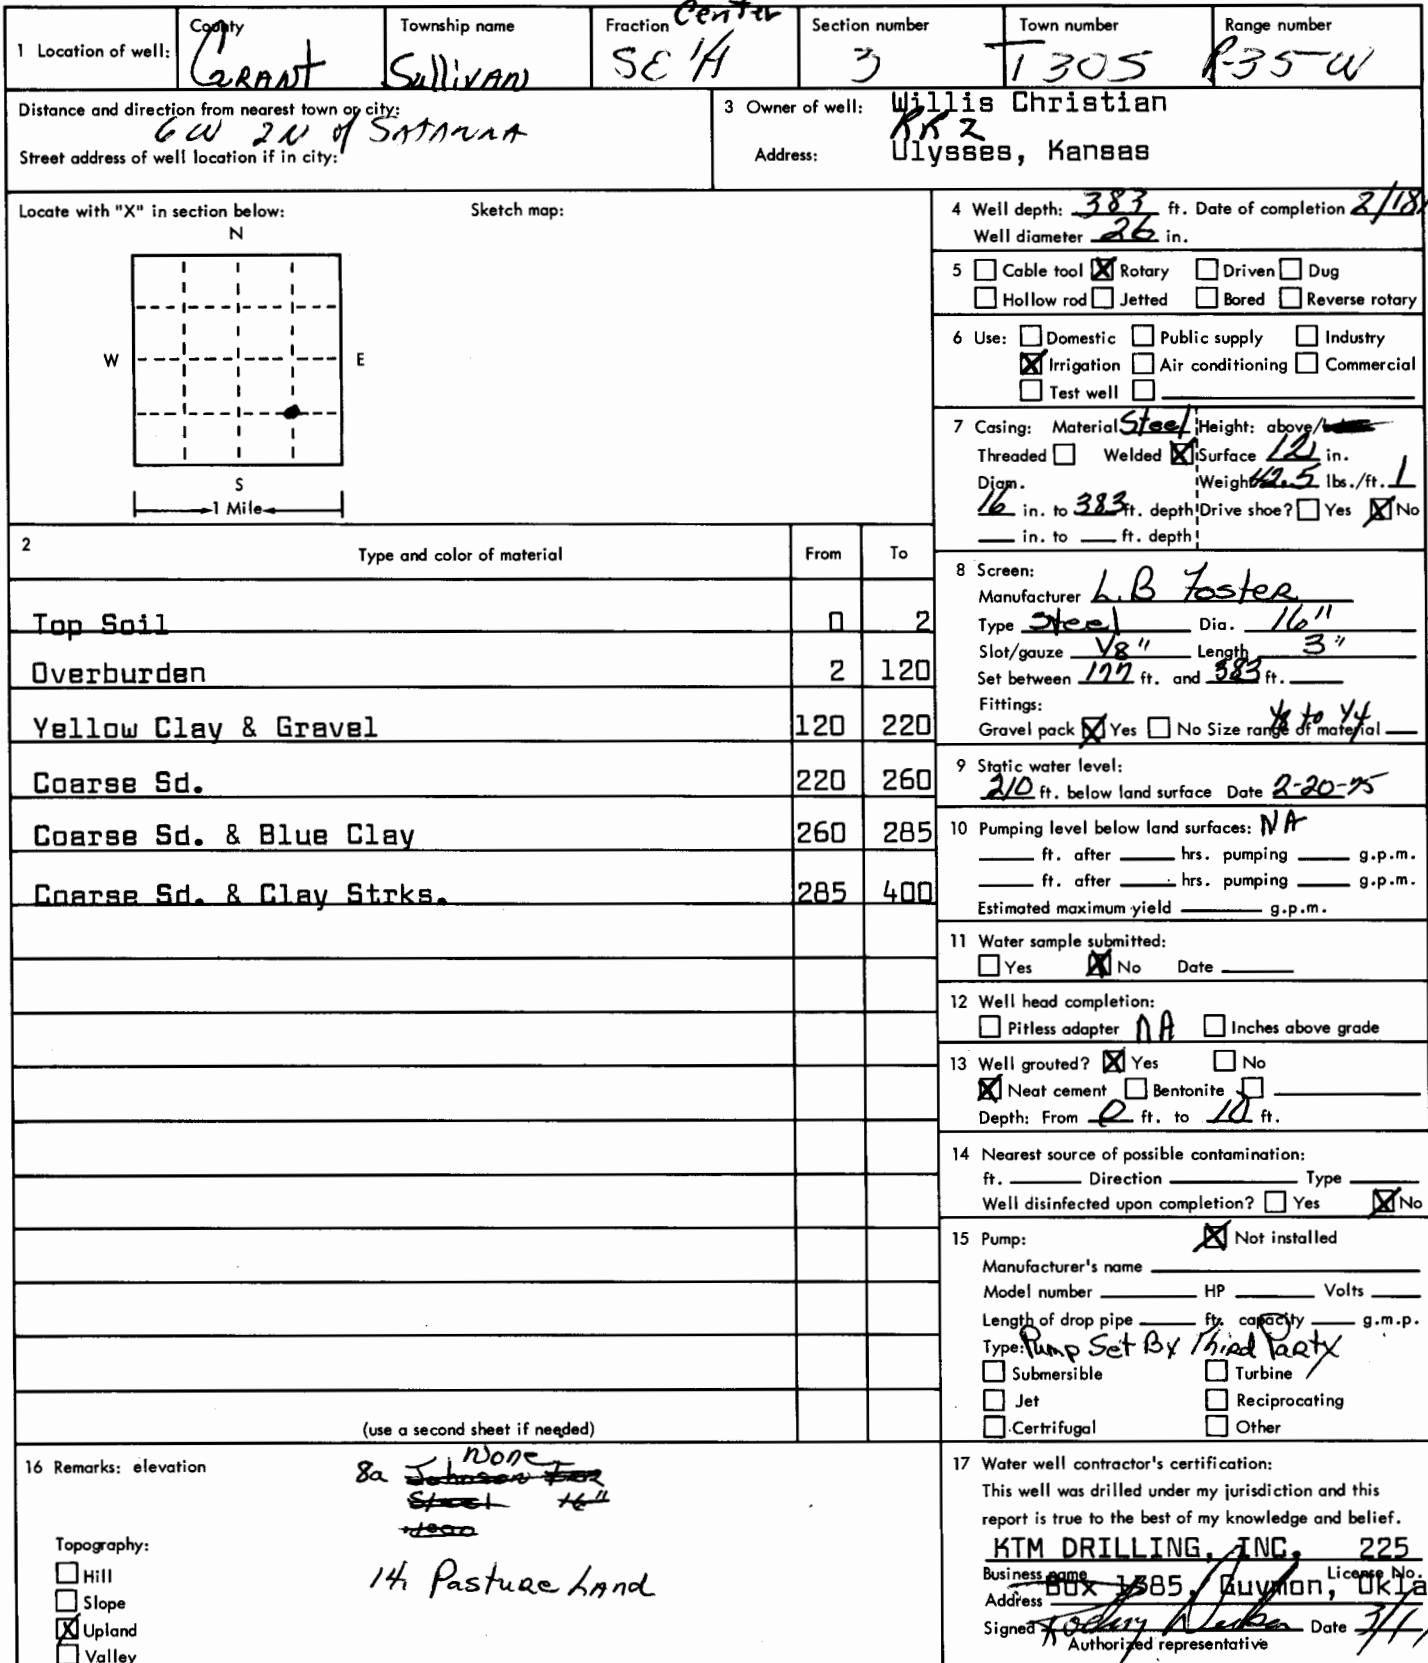 1 Location of well:
County
Grant
Township name
Sullivan
Fraction Center
SE 1/4
Section number
3
Town number
T 30S
Range number
R-35-W
Distance and direction from nearest town or city:
6W 2N of SATANTA
Street address of well location if in city:
3 Owner of well: Willis Christian
RR 2
Address: Ulysses, Kansas
Locate with "X" in section below: Sketch map:
N
W E
S
1 Mile
4 Well depth: 383 ft. Date of completion 2/18
Well diameter 26 in.
5 Cable tool Rotary Driven Dug
Hollow rod Jetted Bored Reverse rotary
6 Use: Domestic Public supply Industry
Irrigation Air conditioning Commercial
Test well
7 Casing: Material Steel Height: above/
Threaded Welded Surface 12 in.
Diam. Weight 42.5 lbs./ft.
16 in. to 383 ft. depth Drive shoe? Yes No
in. to ft. depth
8 Screen:
Manufacturer L.B Foster
Type Steel Dia. 16"
Slot/gauze 1/8" Length 3"
Set between 177 ft. and 383 ft.
Fittings:
Gravel pack Yes No Size range of material 1/8 to 1/4
9 Static water level:
210 ft. below land surface Date 2-20-75
10 Pumping level below land surfaces: NA
ft. after hrs. pumping g.p.m.
ft. after hrs. pumping g.p.m.
Estimated maximum yield g.p.m.
11 Water sample submitted:
Yes No Date
12 Well head completion:
Pitless adapter NA Inches above grade
13 Well grouted? Yes No
Neat cement Bentonite
Depth: From 0 ft. to 10 ft.
14 Nearest source of possible contamination:
ft. Direction Type
Well disinfected upon completion? Yes No
15 Pump: Not installed
Manufacturer's name
Model number HP Volts
Length of drop pipe ft. capacity g.m.p.
Type: Pump Set By Third Party
Submersible Turbine
Jet Reciprocating
Certrifugal Other
2 Type and color of material From To
Top Soil 0 2
Overburden 2 120
Yellow Clay & Gravel 120 220
Coarse Sd. 220 260
Coarse Sd. & Blue Clay 260 285
Coarse Sd. & Clay Strks. 285 400
(use a second sheet if needed)
16 Remarks: elevation
8a None
Johnson
Steel 16"
14 Pasture Land
Topography:
Hill
Slope
Upland
Valley
17 Water well contractor's certification:
This well was drilled under my jurisdiction and this
report is true to the best of my knowledge and belief.
KTM DRILLING, INC. 225
Business name License No.
Address Box 1385, Guymon, Okla
Signed Date 3/1
Authorized representative